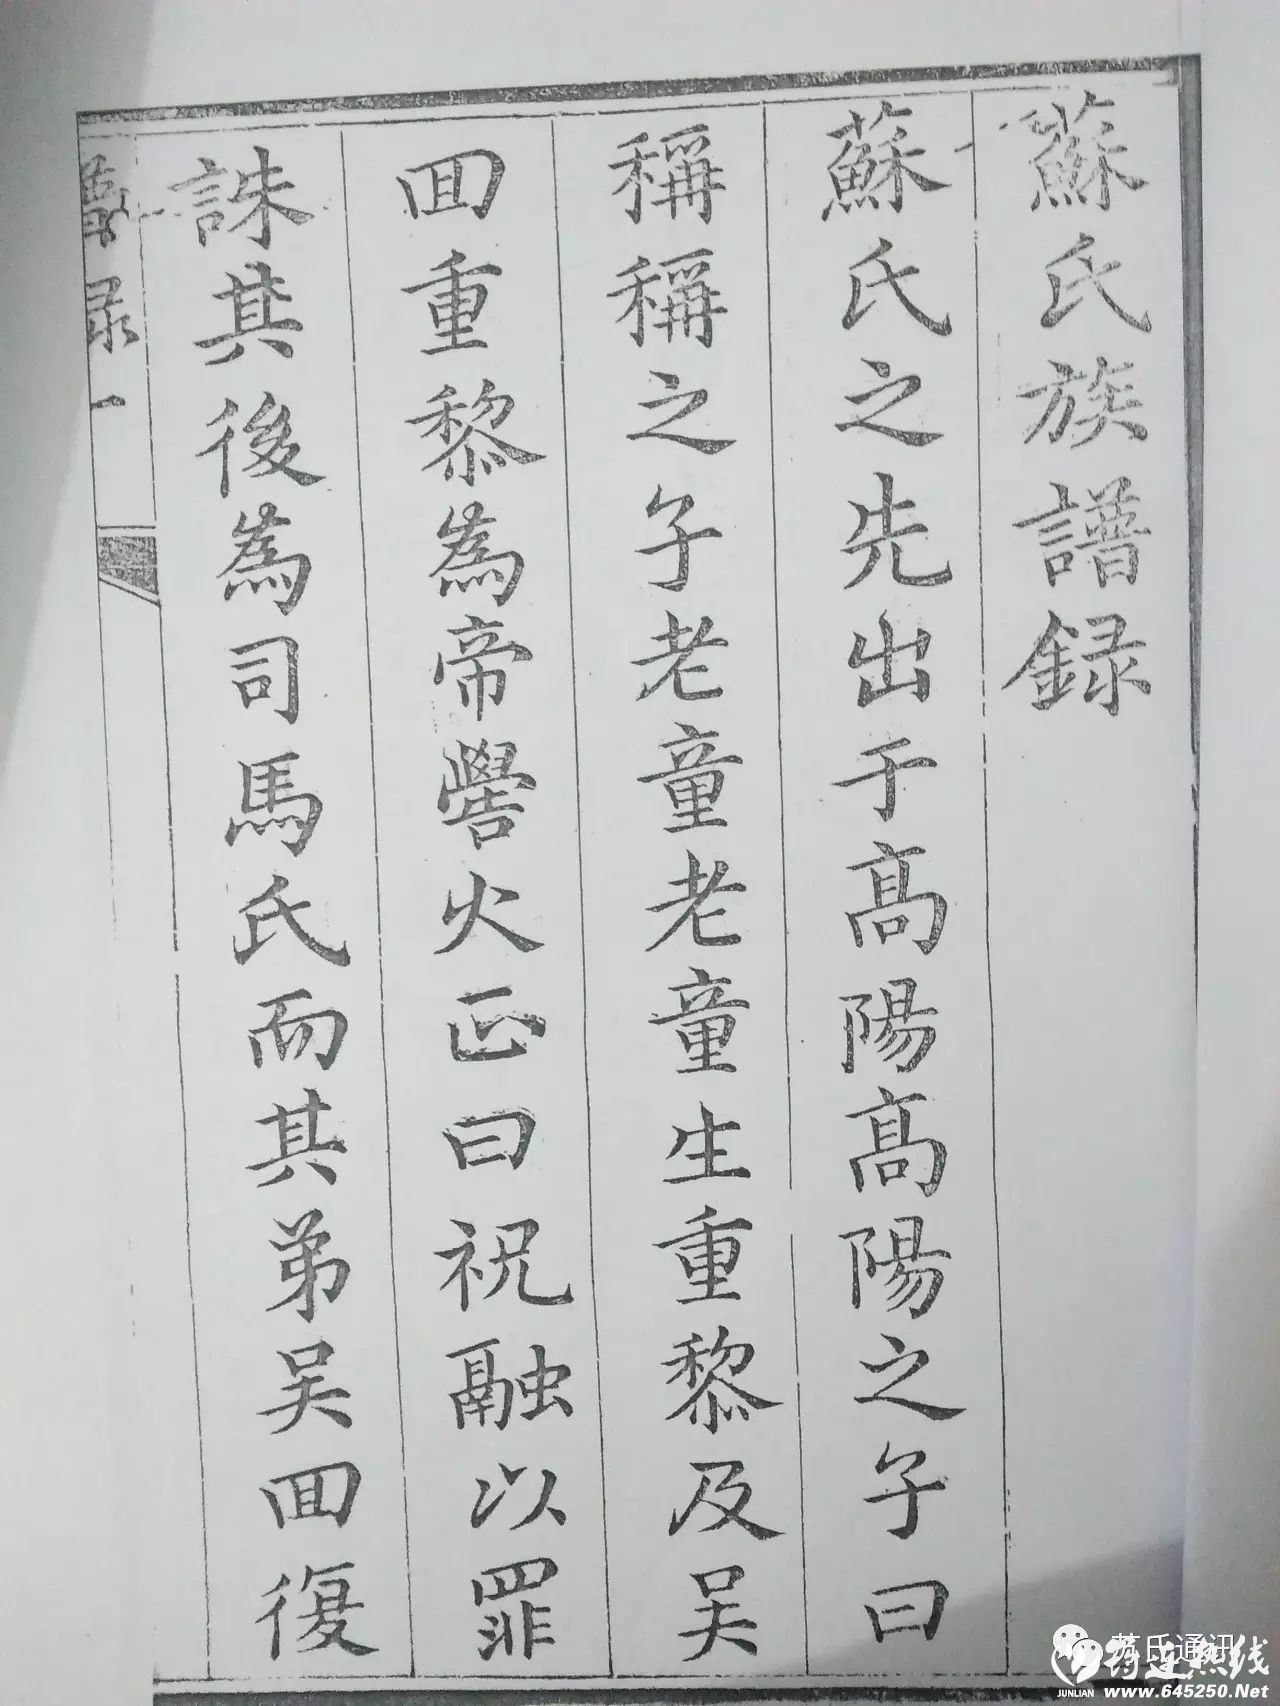 蘇氏族譜録
蘇氏之先出于髙陽髙陽之子曰
稱稱之子老童老童生重黎及吴
囬重黎為帝嚳火正曰祝融以罪
誅其後為司馬氏而其弟吴囬復
録一
苏氏通讯
JUNLIAN
www.645250.Net